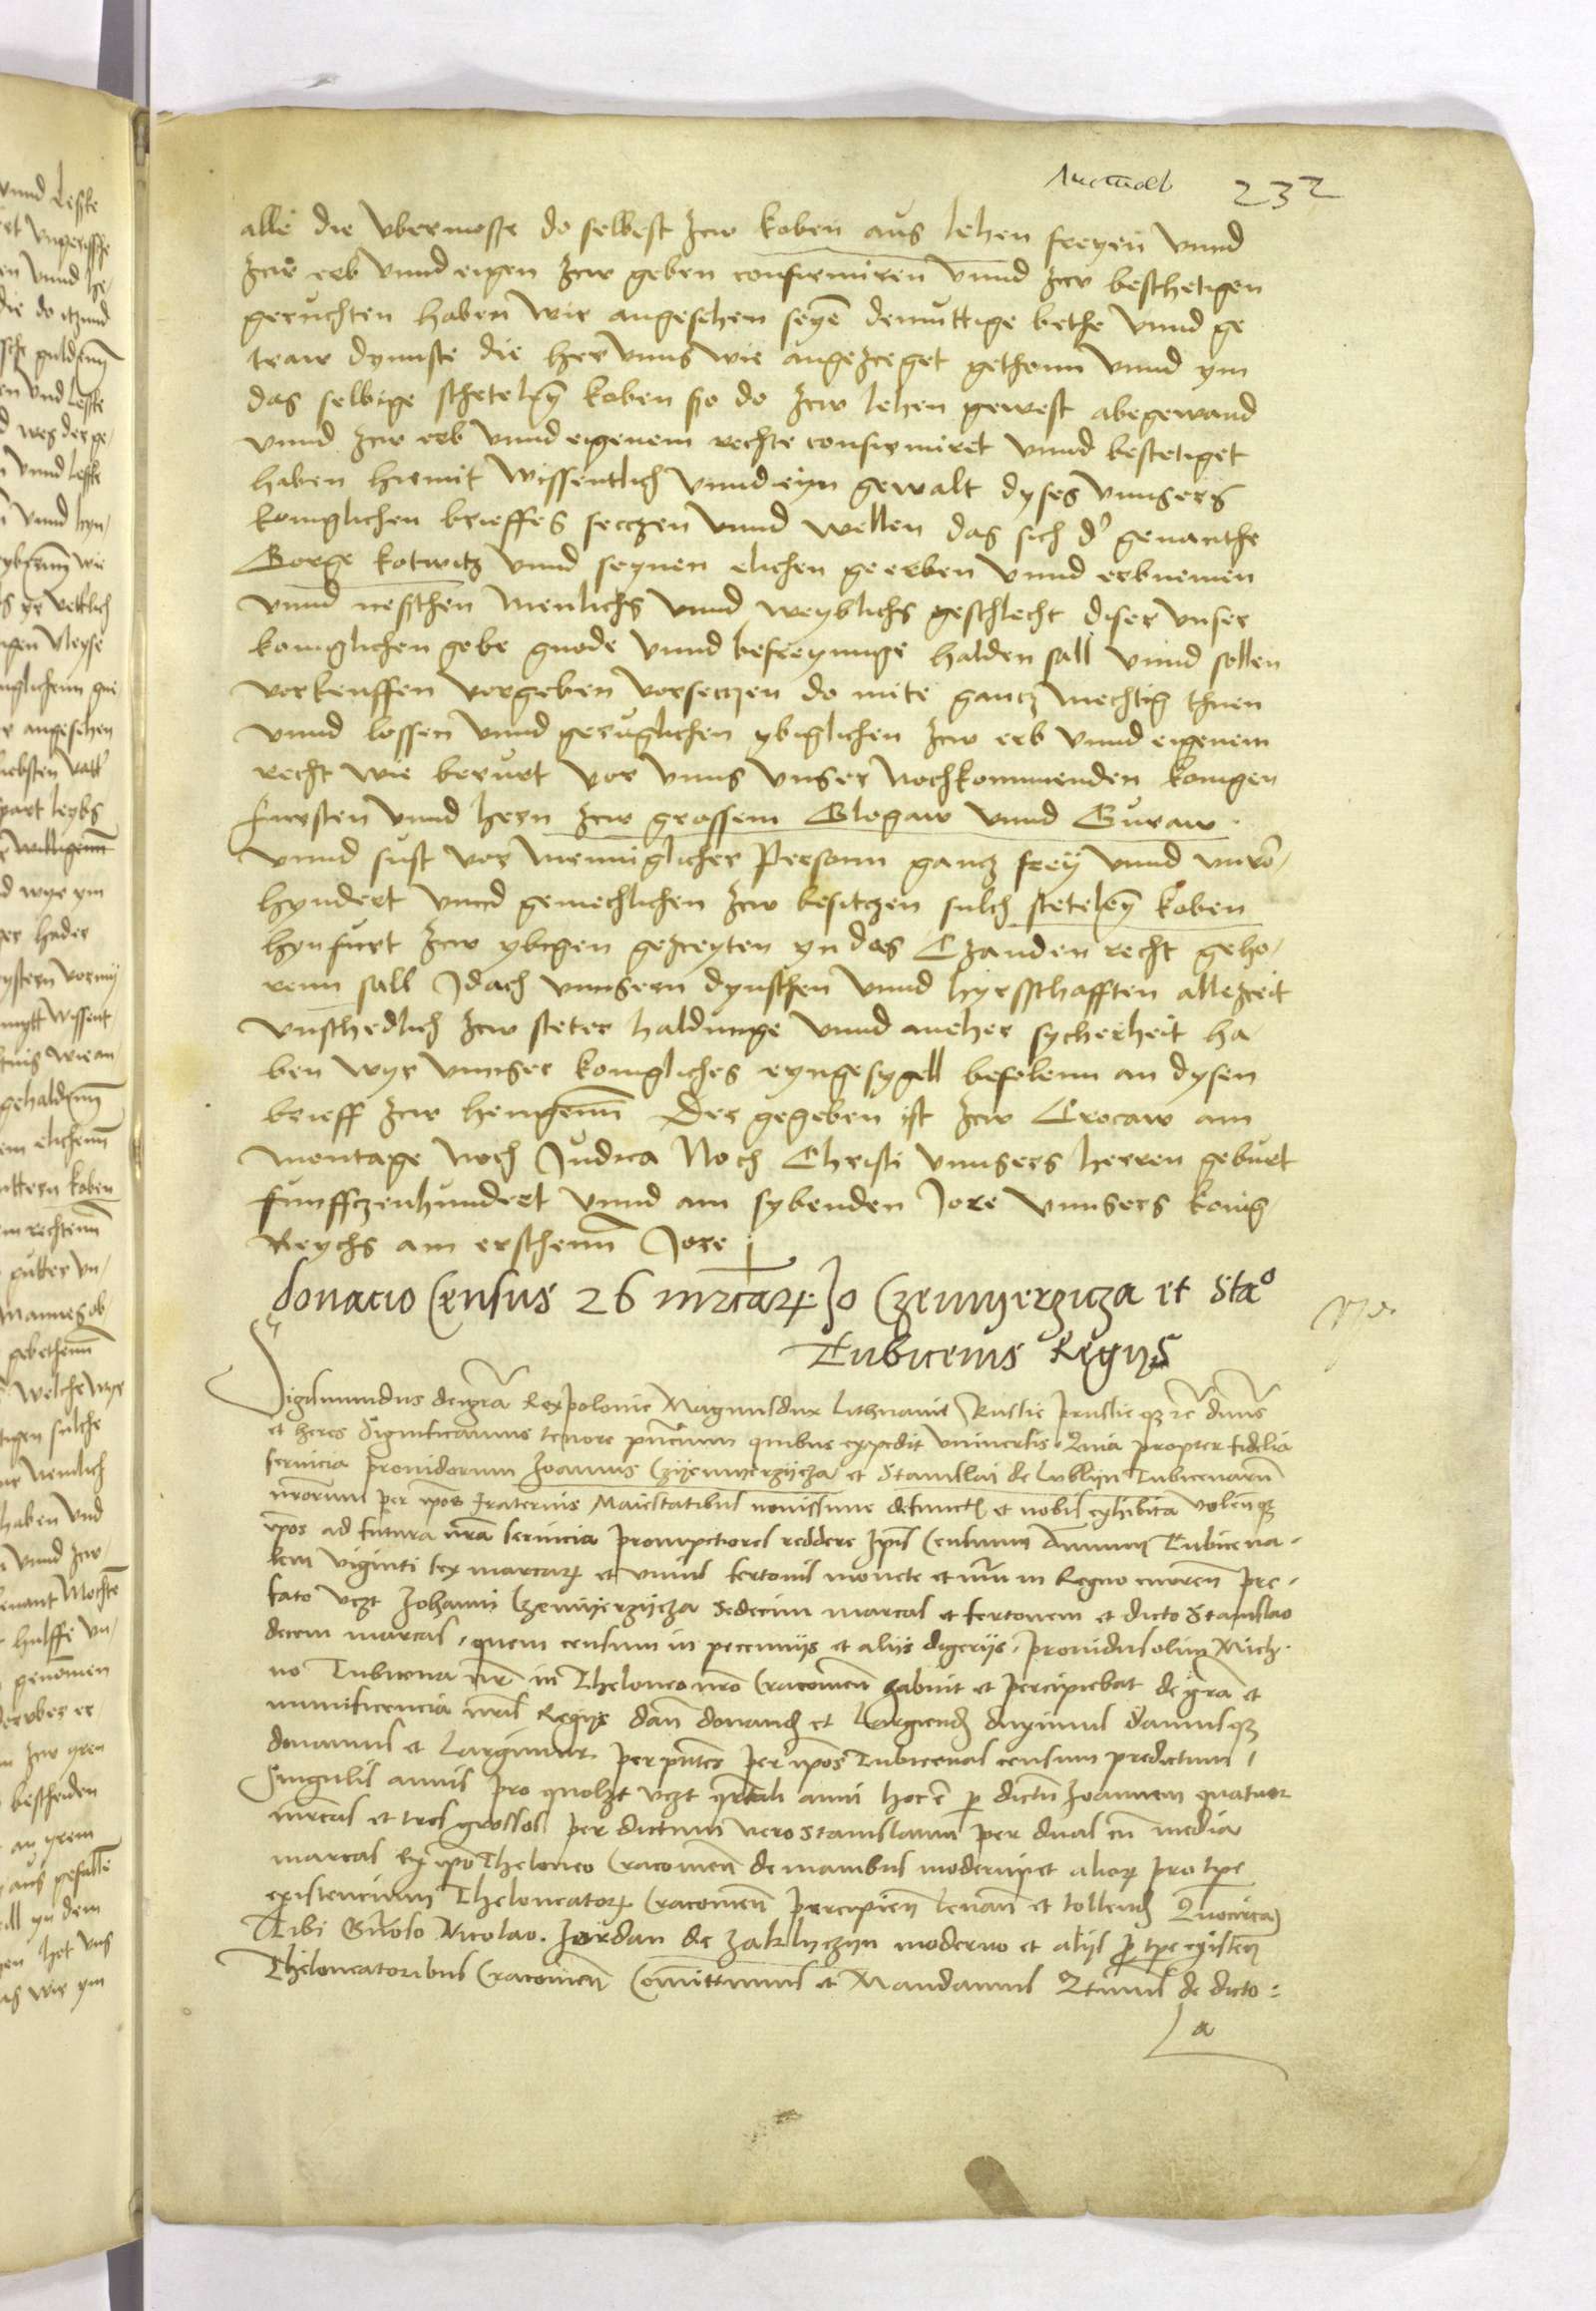 232
alle die vbermosse do selbest zcw koben aus lehen freyen vnnd
zcw erb vnnd eigen zcw geben confirmiren vnnd zcw beschetigen
geruchten haben wir angesehen seyne demuttige bethe vnnd ge
traw dynnste die her vnns wie angezceget gethonn vnnd ym
das selbige schetelen koben so do zcw lehen gewest abegewand
vnnd zcw erb vnnd eigenem rechte confirmiret vnnd bestetiget
haben hirmit wissentlich vnnd eyn gewalt dyses vnnsers
koniglichen brieffes seczen vnnd wellen das sich d' genanthe
Gorge kotwitz vnnd seynen elichen geerben vnnd erbnemen
vnnd nesthen menlichs vnnd weyblichs geschlecht diser vnser
koniglichen gebe gnode vnnd befreyunge halden sall vnnd sollen
vorkeuffen vorgeben vorseczen do mite gancz mechtig thuen
vnnd lossen vnnd geruglichen ybiglichen zcw erb vnnd eigenem
recht wie berurt vor vnns vnser nochkommenden konigen
fursten vnnd hern zcw grossem Glogaw vnnd Guraw
vnnd sust vor menniglicher Personn gancz frey vnnd vnvor
hyndert vnnd gemechlichen zcw besitczen sulch stetelen koben
hynfurt zcw ybigen gezceyten yn das Czauden recht geho
renn sall Idach vnnsern dynsthen vnnd hyrsschafften allezceit
vnschedlich zcw steter haldunge vnnd meher sycherheit ha
ben wyr vnnser konigliches eyngesygell befolenn an dysen
brieff zcw hengenn Der gegeben ist zcw Crocaw am
montage noch Judica Noch Christi vnnsers herren geburt
funffczenhundert vnnd am sybenden Jore vnnsers konig
Reychs am erschenn Jore
donacio Census 26 mrcarum Jo Czemyerzicza et Stao
Tubicenis Regijs
Sigismundus dei gra Rex polonie Magnus dux Lithuanie Russie prussie qz rc dnns
et heres Significamus tenore pncium quibus expedit vniuersis Quia propter fidelia
seruicia prouidorum Joannis Czyemyerzycza et Stanislai de Lublyn Tubicenarum
nrorum per ipos fraternis Maiestatibus nouissime defunct et nobis exhibita volenqz
ipos ad futura nra seruicia promptiores reddere ipis Censum Annuum Tubicena
lem viginti sex marcarum et vnius fertonis monete et nui in Regno curren pre
fato vczt Johanni Czemyerzycza sedecim marcas et fertonem et dicto Stanislao
decem marcas, quem censum in pecunijs et alijs digerijs, prouidus olim Mich
no Tubicena nr in Theloneo nro Cracouien habuit et percipiebat de gra et
munificencia nris Regijs dan donand et Largiend duximus damusqz
donamus et Largimur per pntes per ipos Tubicenas censum predictum
Singulis annis pro quolzt vczt qrtali anni hoc e p dictu Joannem quatuor
mrcas et tres grossos per dictum vero Stanislaum per duas cu media
marcas ex ipo Theloneo Cracouien de manibus moderni et aliorum pro tpe
existencium Theloneatorum Cracouien percipien leuan et tollend Quocirca
Tibi Gnoso Nicolao Jordan de Zaklyczyn moderno et alijs p tpe existen
Theloneatoribus Cracouien Comittimus et Mandamus Qtinus de dicto